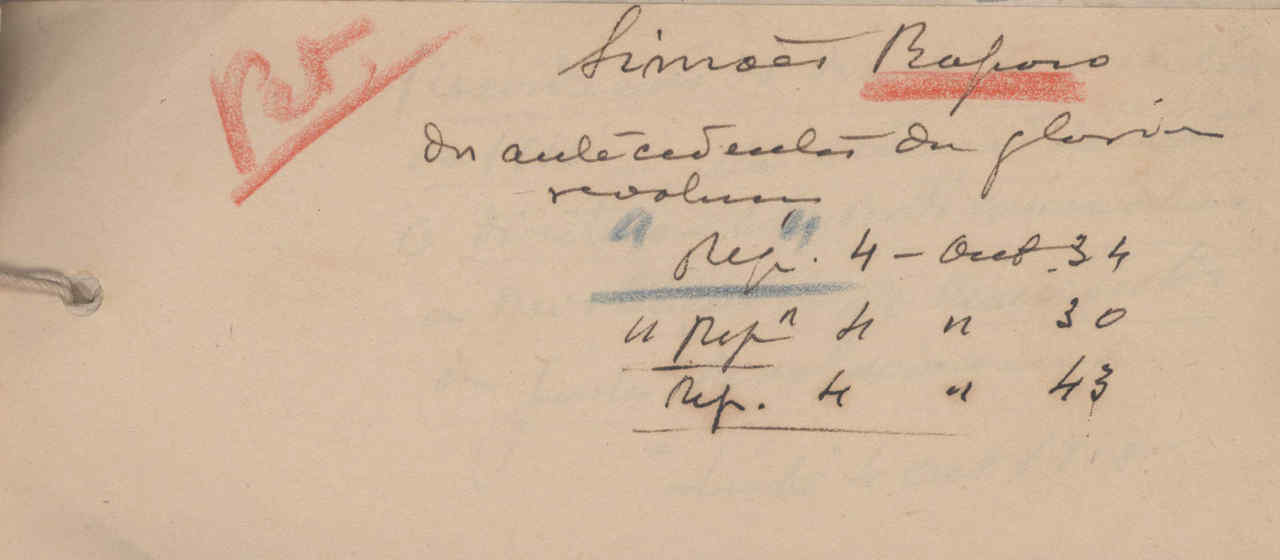 Rev
Simões Raposo
Os antecedentes da gloriosa
revolução
"Rep." 4 - Out. 34
"Rep" 4 " 30
Rep. 4 " 43